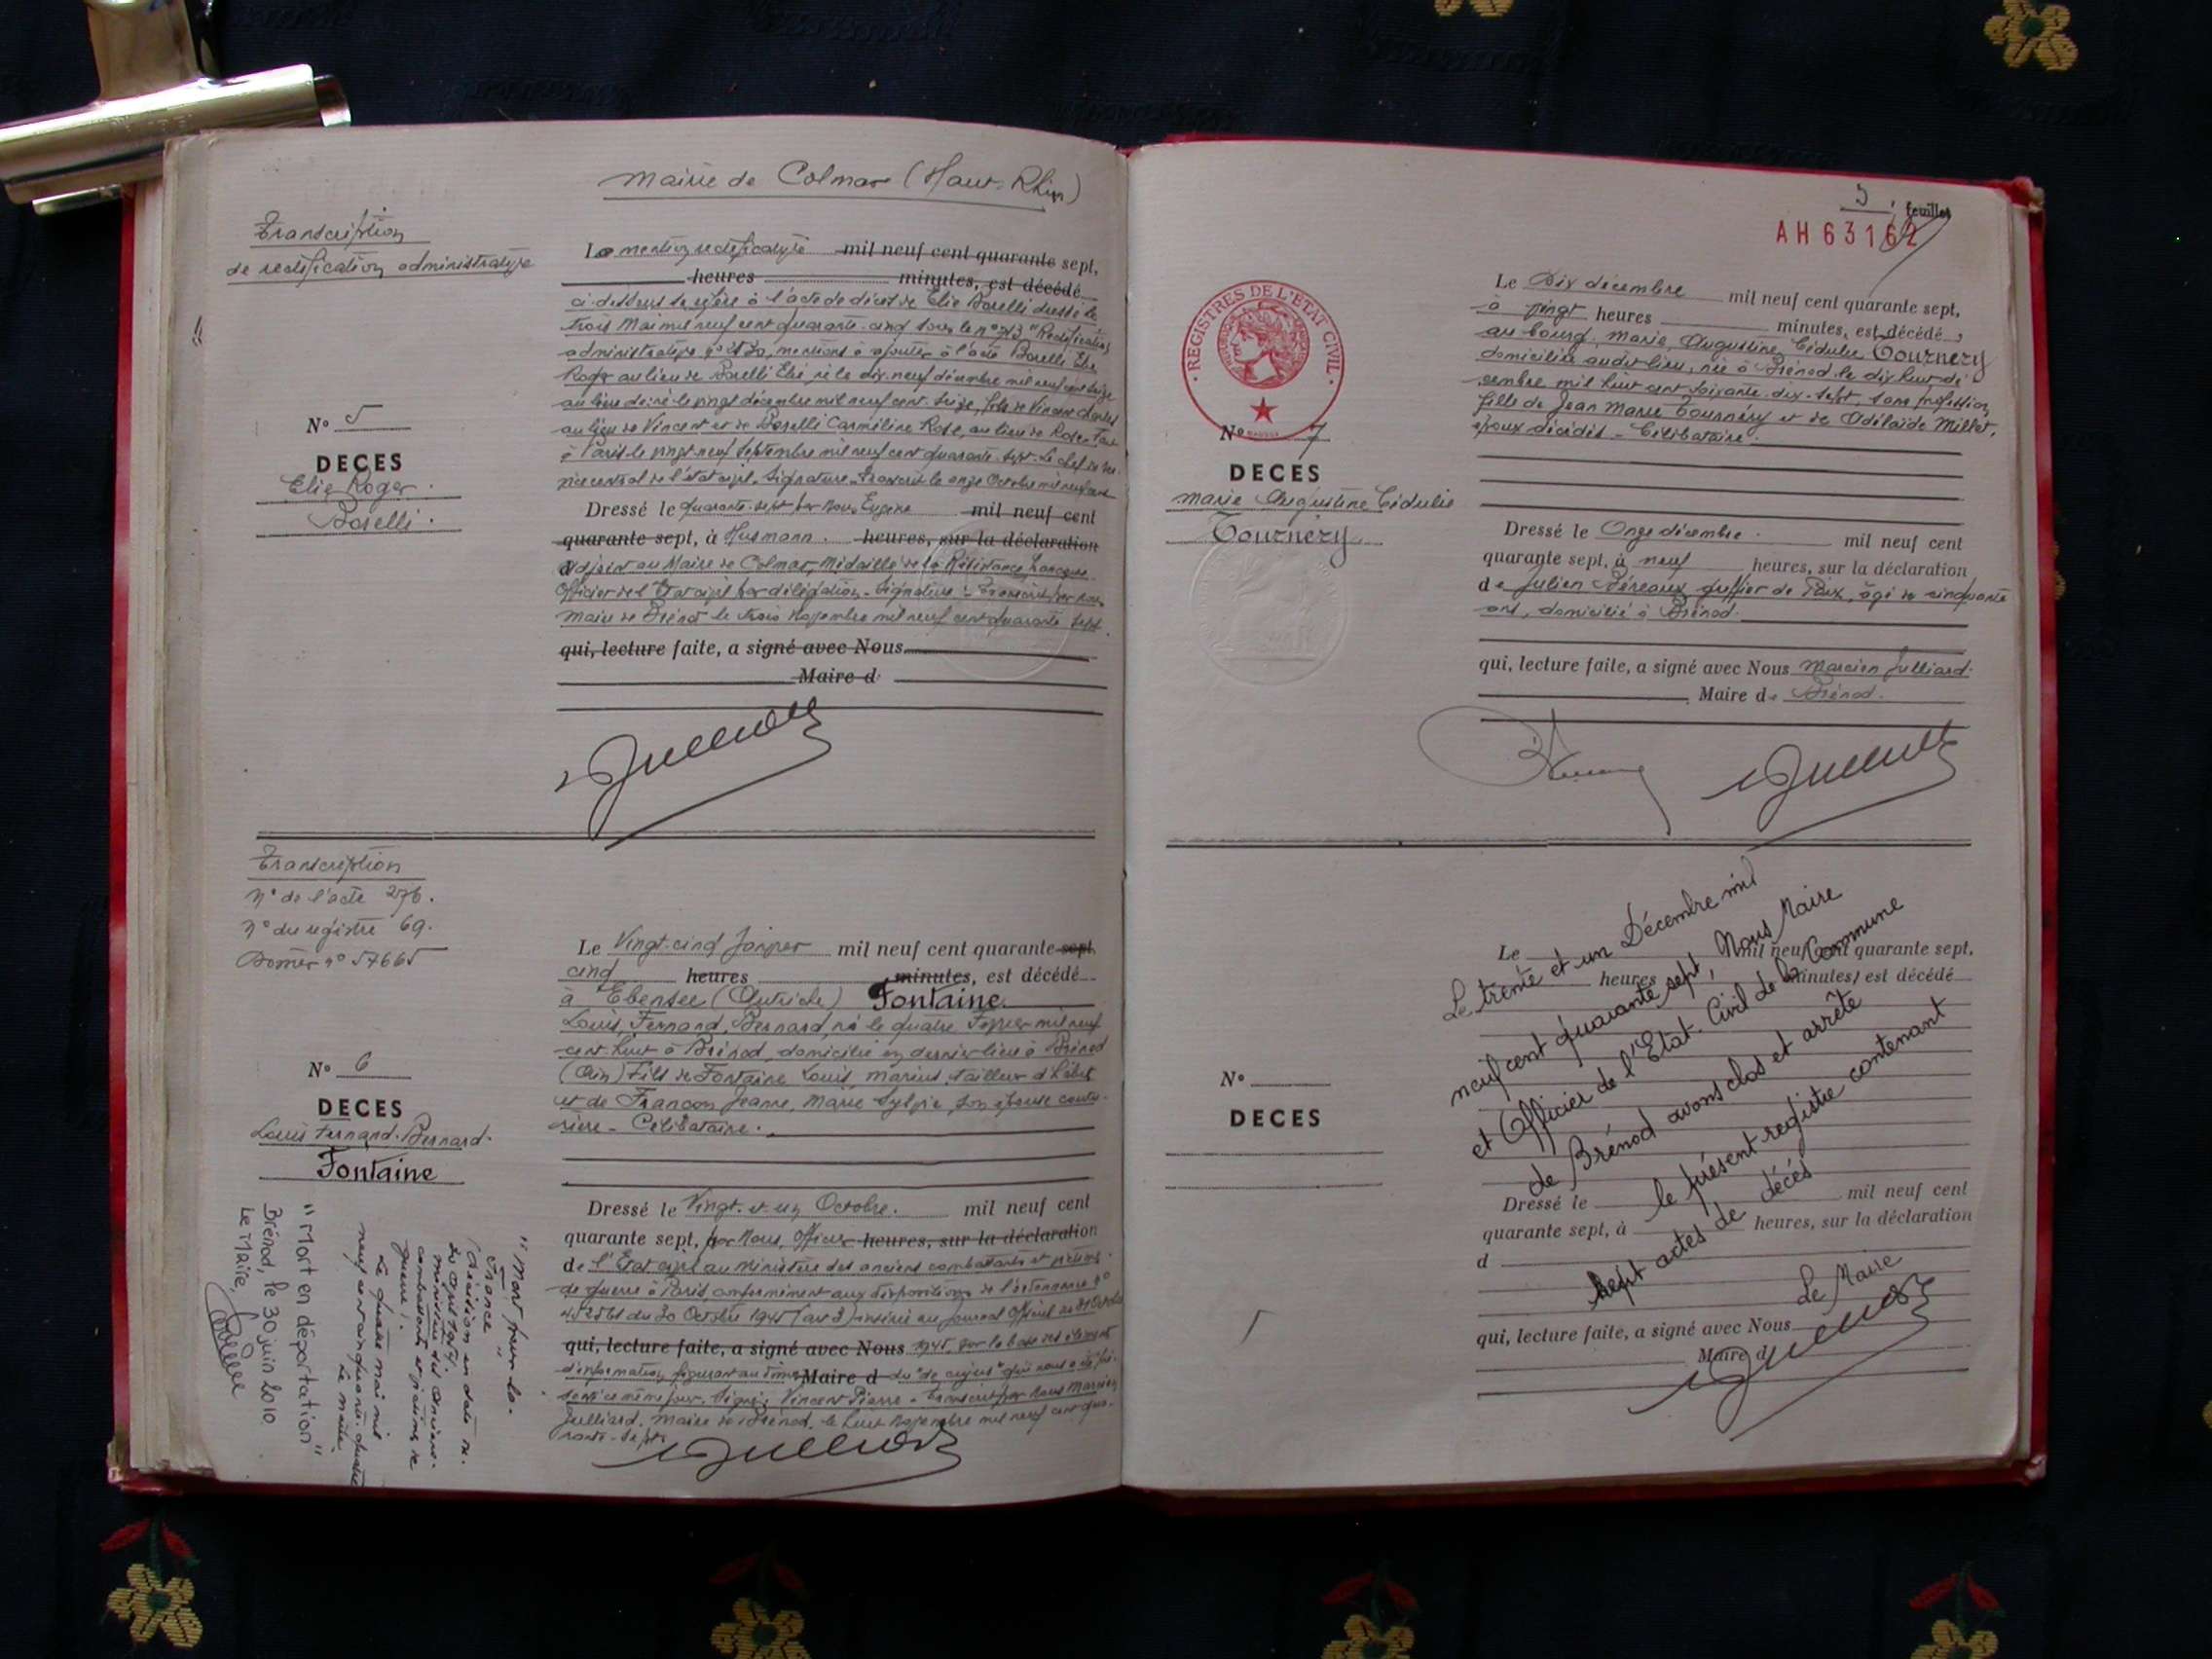 Mairie de Colmar (Haut-Rhin)
Transcription
de rectification administrative
N° 5
DECES
Elie Roger
Borelli
La mention rectificative mil neuf cent quarante sept,
heures minutes, est décédé
ci-dessous se réfère à l'acte de décès de Elie Borelli dressé le
trois Mai mil neuf cent quarante-cinq sous le n° 713 "Rectification
administrative n° mentions à ajouter à l'acte Borelli Elie
Roger au lieu de Borelli Elie, né le dix-neuf décembre mil neuf cent seize
au lieu de né le vingt décembre mil neuf cent seize, fils de Vincent Charles
au lieu de Vincent et de Borelli Carméline Rose, au lieu de Rose. Fait
à Paris le vingt-neuf Septembre mil neuf cent quarante-sept. Le chef du ser-
vice central de l'état civil. Signature. Transcrit le onze Octobre mil neuf cent
Dressé le quarante-sept par Nous Eugène mil neuf cent
quarante sept, à Husmann. heures, sur la déclaration
Adjoint au Maire de Colmar, Médaillé de la Résistance
Officier de l'Etat civil par délégation - Signature - Transcrit par nous
Maire de Brénod le trois Novembre mil neuf cent quarante sept.
qui, lecture faite, a signé avec Nous
Maire d
Transcription
N° de l'acte 276.
N° du registre 69.
Dossier n° 57665
N° 6
DECES
Louis Fernand Bernard
Fontaine
Le Vingt-cinq Janvier mil neuf cent quarante sept,
cinq heures minutes, est décédé
à Ebensee (Autriche) Fontaine
Louis, Fernand, Bernard, né le quatre Février mil neuf
cent huit à Brénod, domicilié en dernier lieu à Brénod
(Ain) Fils de Fontaine Louis, Marius, tailleur d'habits
et de Francon Jeanne, Marie Sylvie, son épouse coutu-
rière - Célibataire.
Dressé le Vingt-et-un Octobre. mil neuf cent
quarante sept, par Nous, Officier heures, sur la déclaration
de l'Etat civil au Ministère des anciens combattants et victimes
de guerre à Paris, conformément aux dispositions de l'ordonnance n°
45 2561 du 30 Octobre 1945 (art 3) insérée au Journal Officiel du 31 Octobre
qui, lecture faite, a signé avec Nous 1945, sur la base des éléments
d'information figurant au dossier Maire d du "de cujus" qui nous a été
ce même jour. Signé: Vincent Pierre - Transcrit par Nous Marcien
Julliard, Maire de Brénod, le huit Novembre mil neuf cent qua-
rante-sept
"Mort pour la
France"
(décision en date du
Ministère des anciens
combattants et victimes de
guerre).
Le quatre mai mil
neuf cent cinquante-quatre
Le maire
"Mort en déportation"
Brénod, le 30 juin 2010
Le Maire,
5 feuillet
AH 63162
REGISTRES DE L'ÉTAT CIVIL
N° 7
DECES
Marie Augustine Cédulie
Tournery
Le Dix décembre mil neuf cent quarante sept,
à vingt heures minutes, est décédé
au bourg, Marie, Augustine, Cédulie Tournery
domiciliée audit lieu, née à Brénod le dix huit dé-
cembre mil huit cent soixante-dix-sept, sans profession,
fille de Jean Marie Tournéry et de Adélaïde Millet,
époux décédés - Célibataire.
Dressé le Onze décembre mil neuf cent
quarante sept, à neuf heures, sur la déclaration
de Julien Béreaux greffier de Paix, âgé de cinquante
ans, domicilié à Brénod.
qui, lecture faite, a signé avec Nous Marcien Julliard.
Maire de Brénod.
N°
DECES
Le mil neuf cent quarante sept,
heures minutes, est décédé
Dressé le mil neuf cent
quarante sept, à heures, sur la déclaration
d
qui, lecture faite, a signé avec Nous
Maire d
Le trente et un Décembre mil
neuf cent quarante sept, Nous Maire
et Officier de l'Etat-Civil de la Commune
de Brénod avons clos et arrêté
le présent registre contenant
sept actes de décès
Le Maire